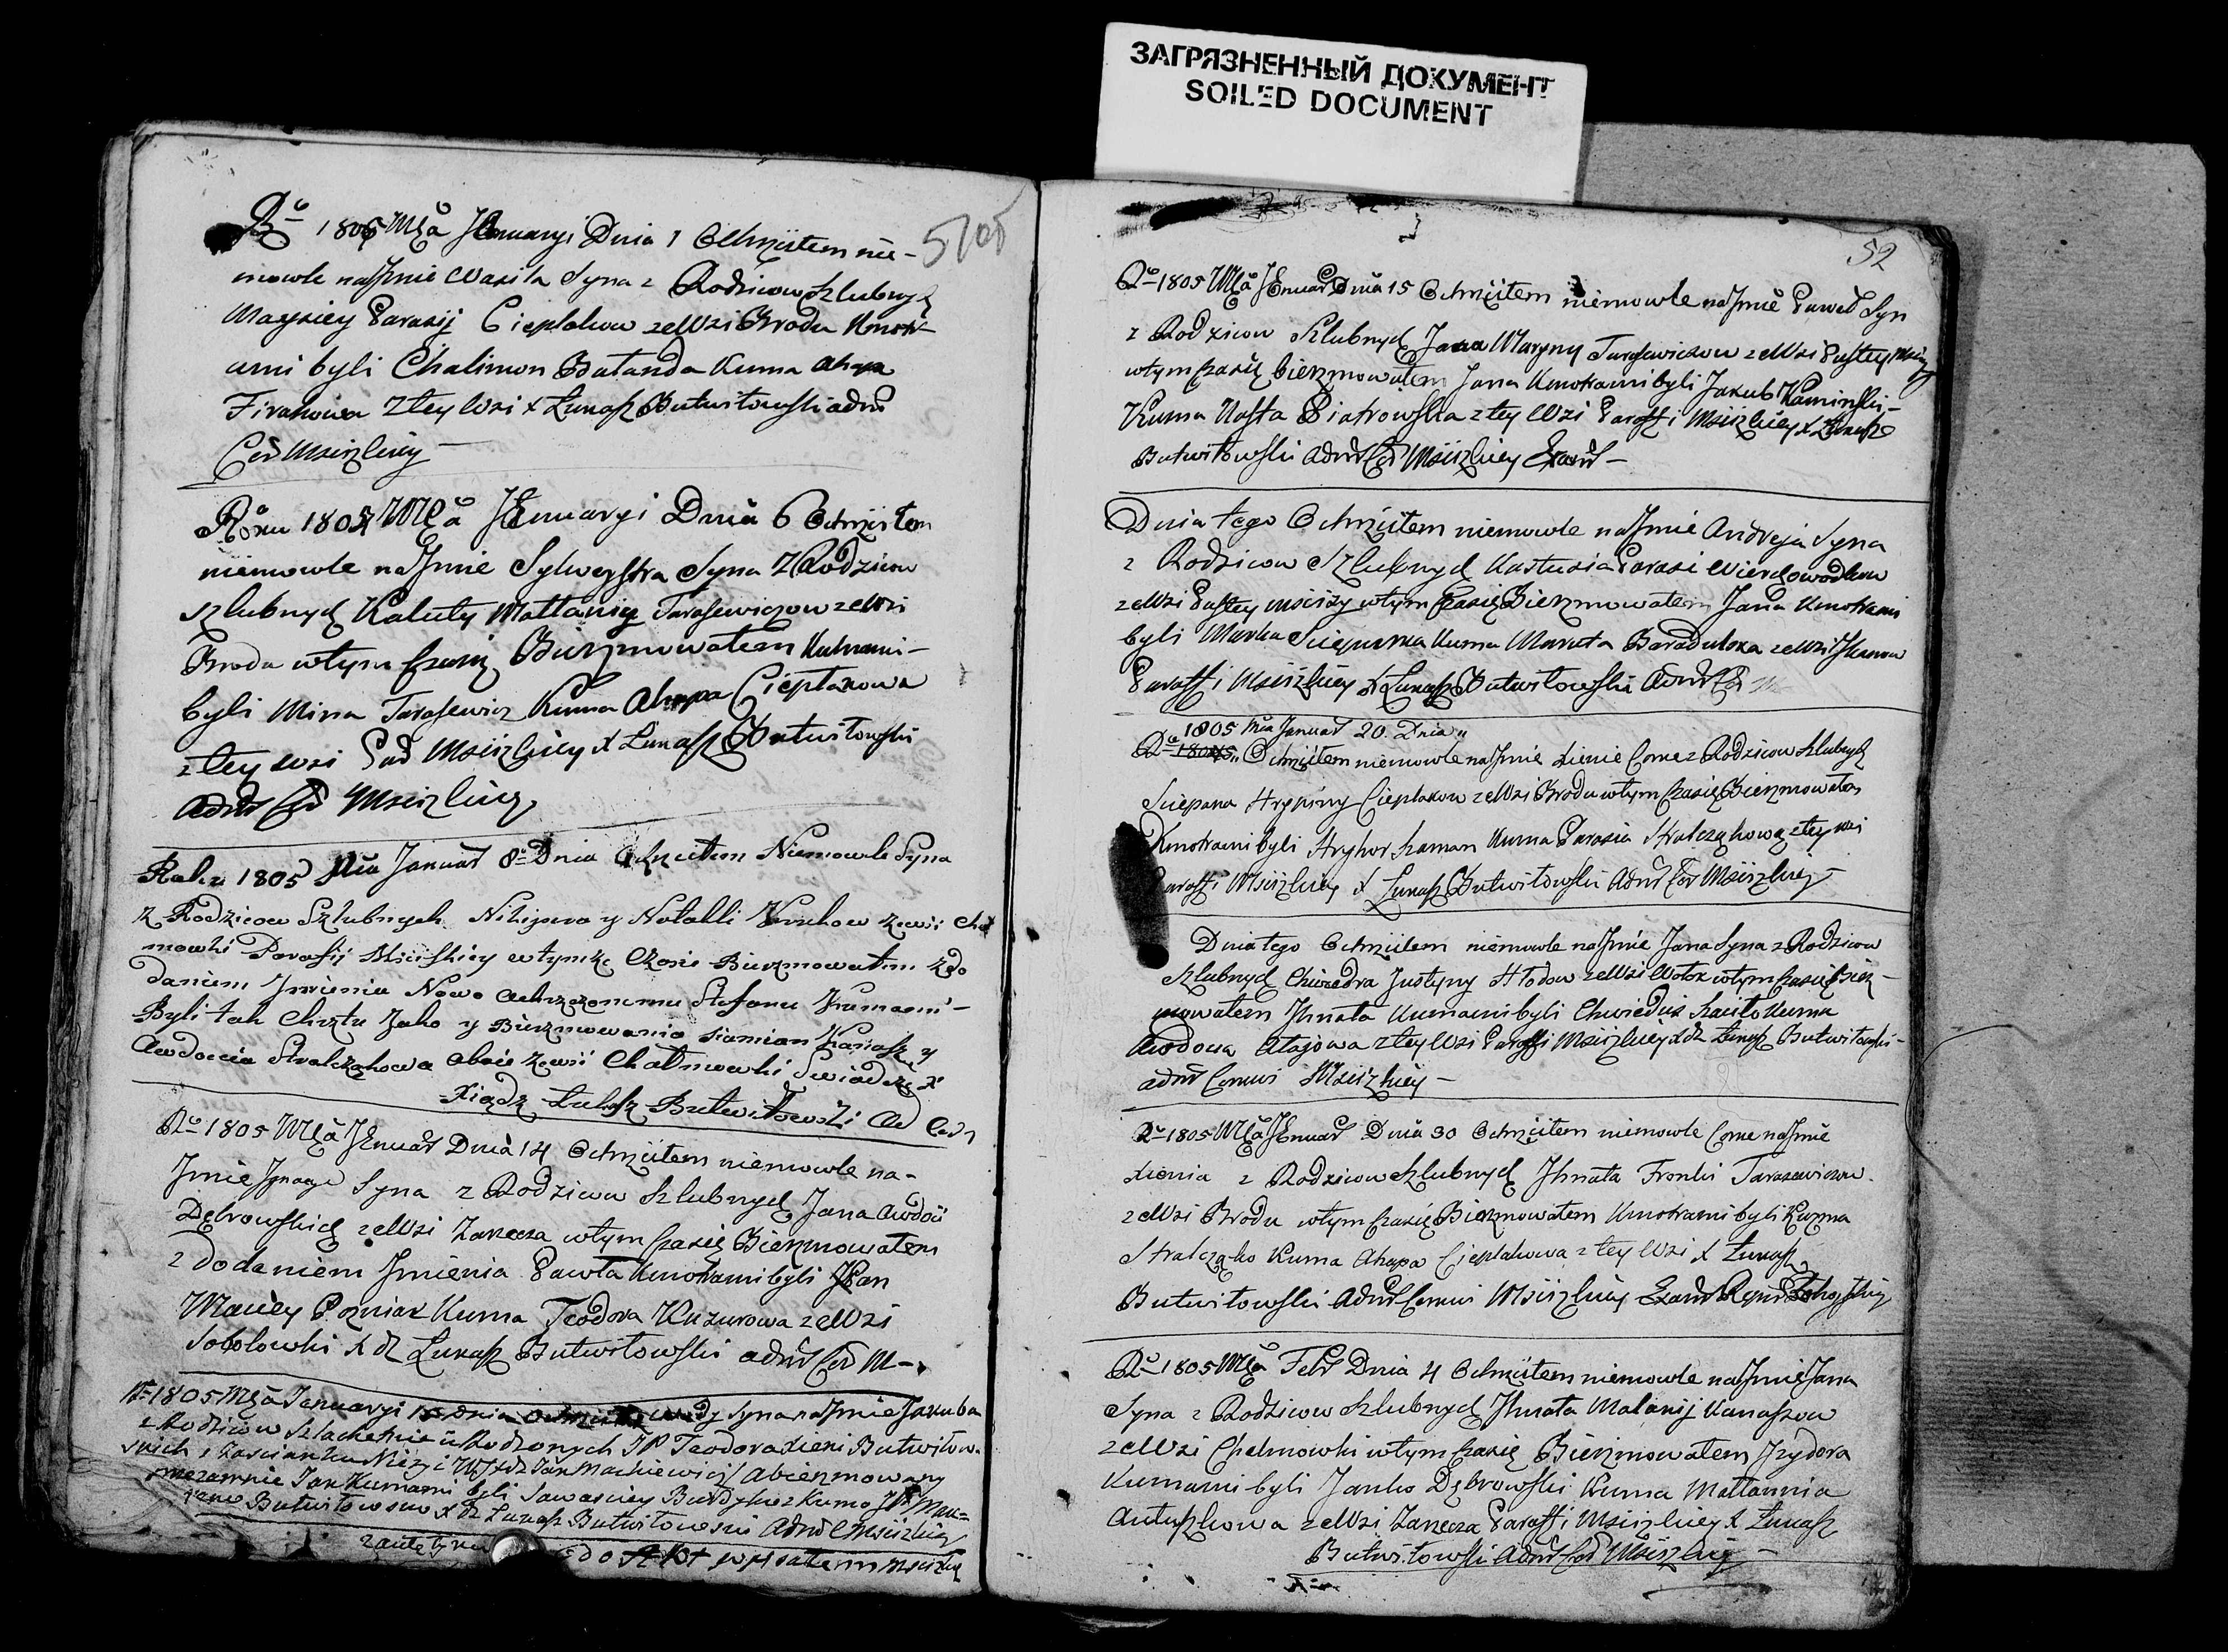 ЗАГРЯЗНЕННЫЙ ДОКУМЕНТ
SOILED DOCUMENT
Rº 1805 Mca JEnuaryi Dnia 1 Ochrzcilem nie-
mowle na Jmie Wasila Syna z Rodzicow Szlubnych
Maysiey Parasij Cieplakow ze Wsi Brodu Kmotr-
ami byli Chalimon Bulanda Kuma Ahapa
Firakowa z tey Wsi X Łukasz Butwiłowski admr
Cer Msciżskiey
Roku 1805 Mca JEnuaryi Dnia 6 Ochrzcilem
niemowle na Jmie Sylwestra Syna z Rodzicow
szlubnych Kaluty Mallanij Tarasewiczow ze Wsi
Brodu w tym czasie Bierzmowalem Kutrami
byli Mina Tarasewicz Kuma Ahapa Cieplakowa
z tey wsi Par Msciżskiey X Łukasz Butwiłowski
Admr Cer Msciżskiey
Roku 1805 Mca Januar 8º Dnia Ochrzcilem Niemowle Syna
z Rodzicow Szlubnych Nikipora y Natalli ze wsi Chał
mowki Parafij Msciskiey w tymże Czasie Bierzmowałem z do
daniem Jmienia Nowo Ochrzczonemu Stefana Kumami
Byli tak Chrztu Jako y Bierzmowania Siamion Kanasz y
Awdocia Stralczakowa oboie ze wsi Chałmowki Swiadczę X
Xiądz Łukasz Butwiłowski Ad Cer
Rº 1805 Mca JEnuar Dnia 14 Ochrzcilem niemowle na
Jmie Jgnacy Syna z Rodzicow Szlubnych Jana Awdocii
Dębrowskich ze Wsi Zarzecza w tym czasie Bierzmowalem
z dodaniem Jmienia Pawła Kmotrami byli Jan
Maciey Pozniak Kuma Teodora Kuzurowa ze Wsi
Sobolowki X dz Łukasz Butwiłowski admr Cer M
Rº 1805 Mca Januaryi 15 Dnia Ochrzcił z wody Syna na Jmie Jakuba
z Rodzicow Szlachetnie urodzonych JP Teodora Xieni Butwiłow-
skich z Zascianku Niżyc X dz Jan Mackiewicz abierzmowany
przezemnie Jan Kumami byli Sawasciey Kuma
Butwiłowsna X dz Łukasz Butwiłowski Admr Msciżskiey
do Akt wpisałem Msciżskiey
52
Rº 1805 Mca JEnuar Dnia 15 Ochrzcilem niemowle na Jmie Paweł Syn
z Rodzicow Szlubnych Jana Maryny Tarasewiczow ze Wsi Pustey Msciży
w tym czasie bierzmowalem Jana Kmotrami byli Jakub Kaminski
Kuma Nasta Piatrowska z tey Wsi Paraffi Msciżskiey X Łukasz
Butwiłowski Admr Cer Msciżskiey
Dnia tego Ochrzcilem niemowle na Jmie Andreja Syna
z Rodzicow Szlubnych Kastusia Parasi Wierchowodkow
ze Wsi Pustey Msciży w tym czasie Bierzmowalem Jana Kmotrami
byli Marka Kuma Maruta Baradulka ze Wsi
Paraffi Msciżskiey X Łukasz Butwiłowski Admr Cer
1805 Mca Januar 20. Dnia
Rº Ochrzcilem niemowle na Jmie Xienie Corne z Rodzicow Szlubnych
Sciepana Hrypiny Cieplakow ze Wsi Brodu w tym czasie Bierzmowałem
Kmotrami byli Hryhor Szaman Kuma Parasia Stralczakowa z tey wsi
Paraffi Msciżskiey X Łukasz Butwiłowski Admr Cer Msciżskiey
Dnia tego Ochrzcilem niemowle na Jmie Jana Syna z Rodzicow
Szlubnych Chwiedra Justyny Hłodow ze Wsi Wołok w tym czasie bierz-
mowalem Jhnata Kumami byli Chwiedus Kuma
Awdocia Atajowa z tey Wsi Paraffi Msciżskiey X dz Łukasz Butwiłowski
admr Cerkwi Msciżskiey
Rº 1805 Mca JEnuar Dnia 30 Ochrzcilem niemowle Corne na Jmie
Xienia z Rodzicow Szlubnych Jhnata Fronki Tarasewiczow
ze Wsi Brodu w tym czasie Bierzmowalem Kmotrami byli Kuzma
Stralczako Kuma Ahapa Cieplakowa z tey Wsi X Łukasz
Butwiłowski Admr Cerkwi Msciżskiey
Rº 1805 Mca Febr Dnia 4 Ochrzcilem niemowle na Jmie Jana
Syna z Rodzicow Szlubnych Jhnata Malanij Kanaszow
ze Wsi Chelmowki w tym czasie Bierzmowalem Jzydora
Kumami byli Janko Dębrowski Kuma Mallannia
Antuszkowa ze Wsi Zarzecza Paraffi Msciżskiey X Łukasz
Butwiłowski Admr Cer Msciżskiey